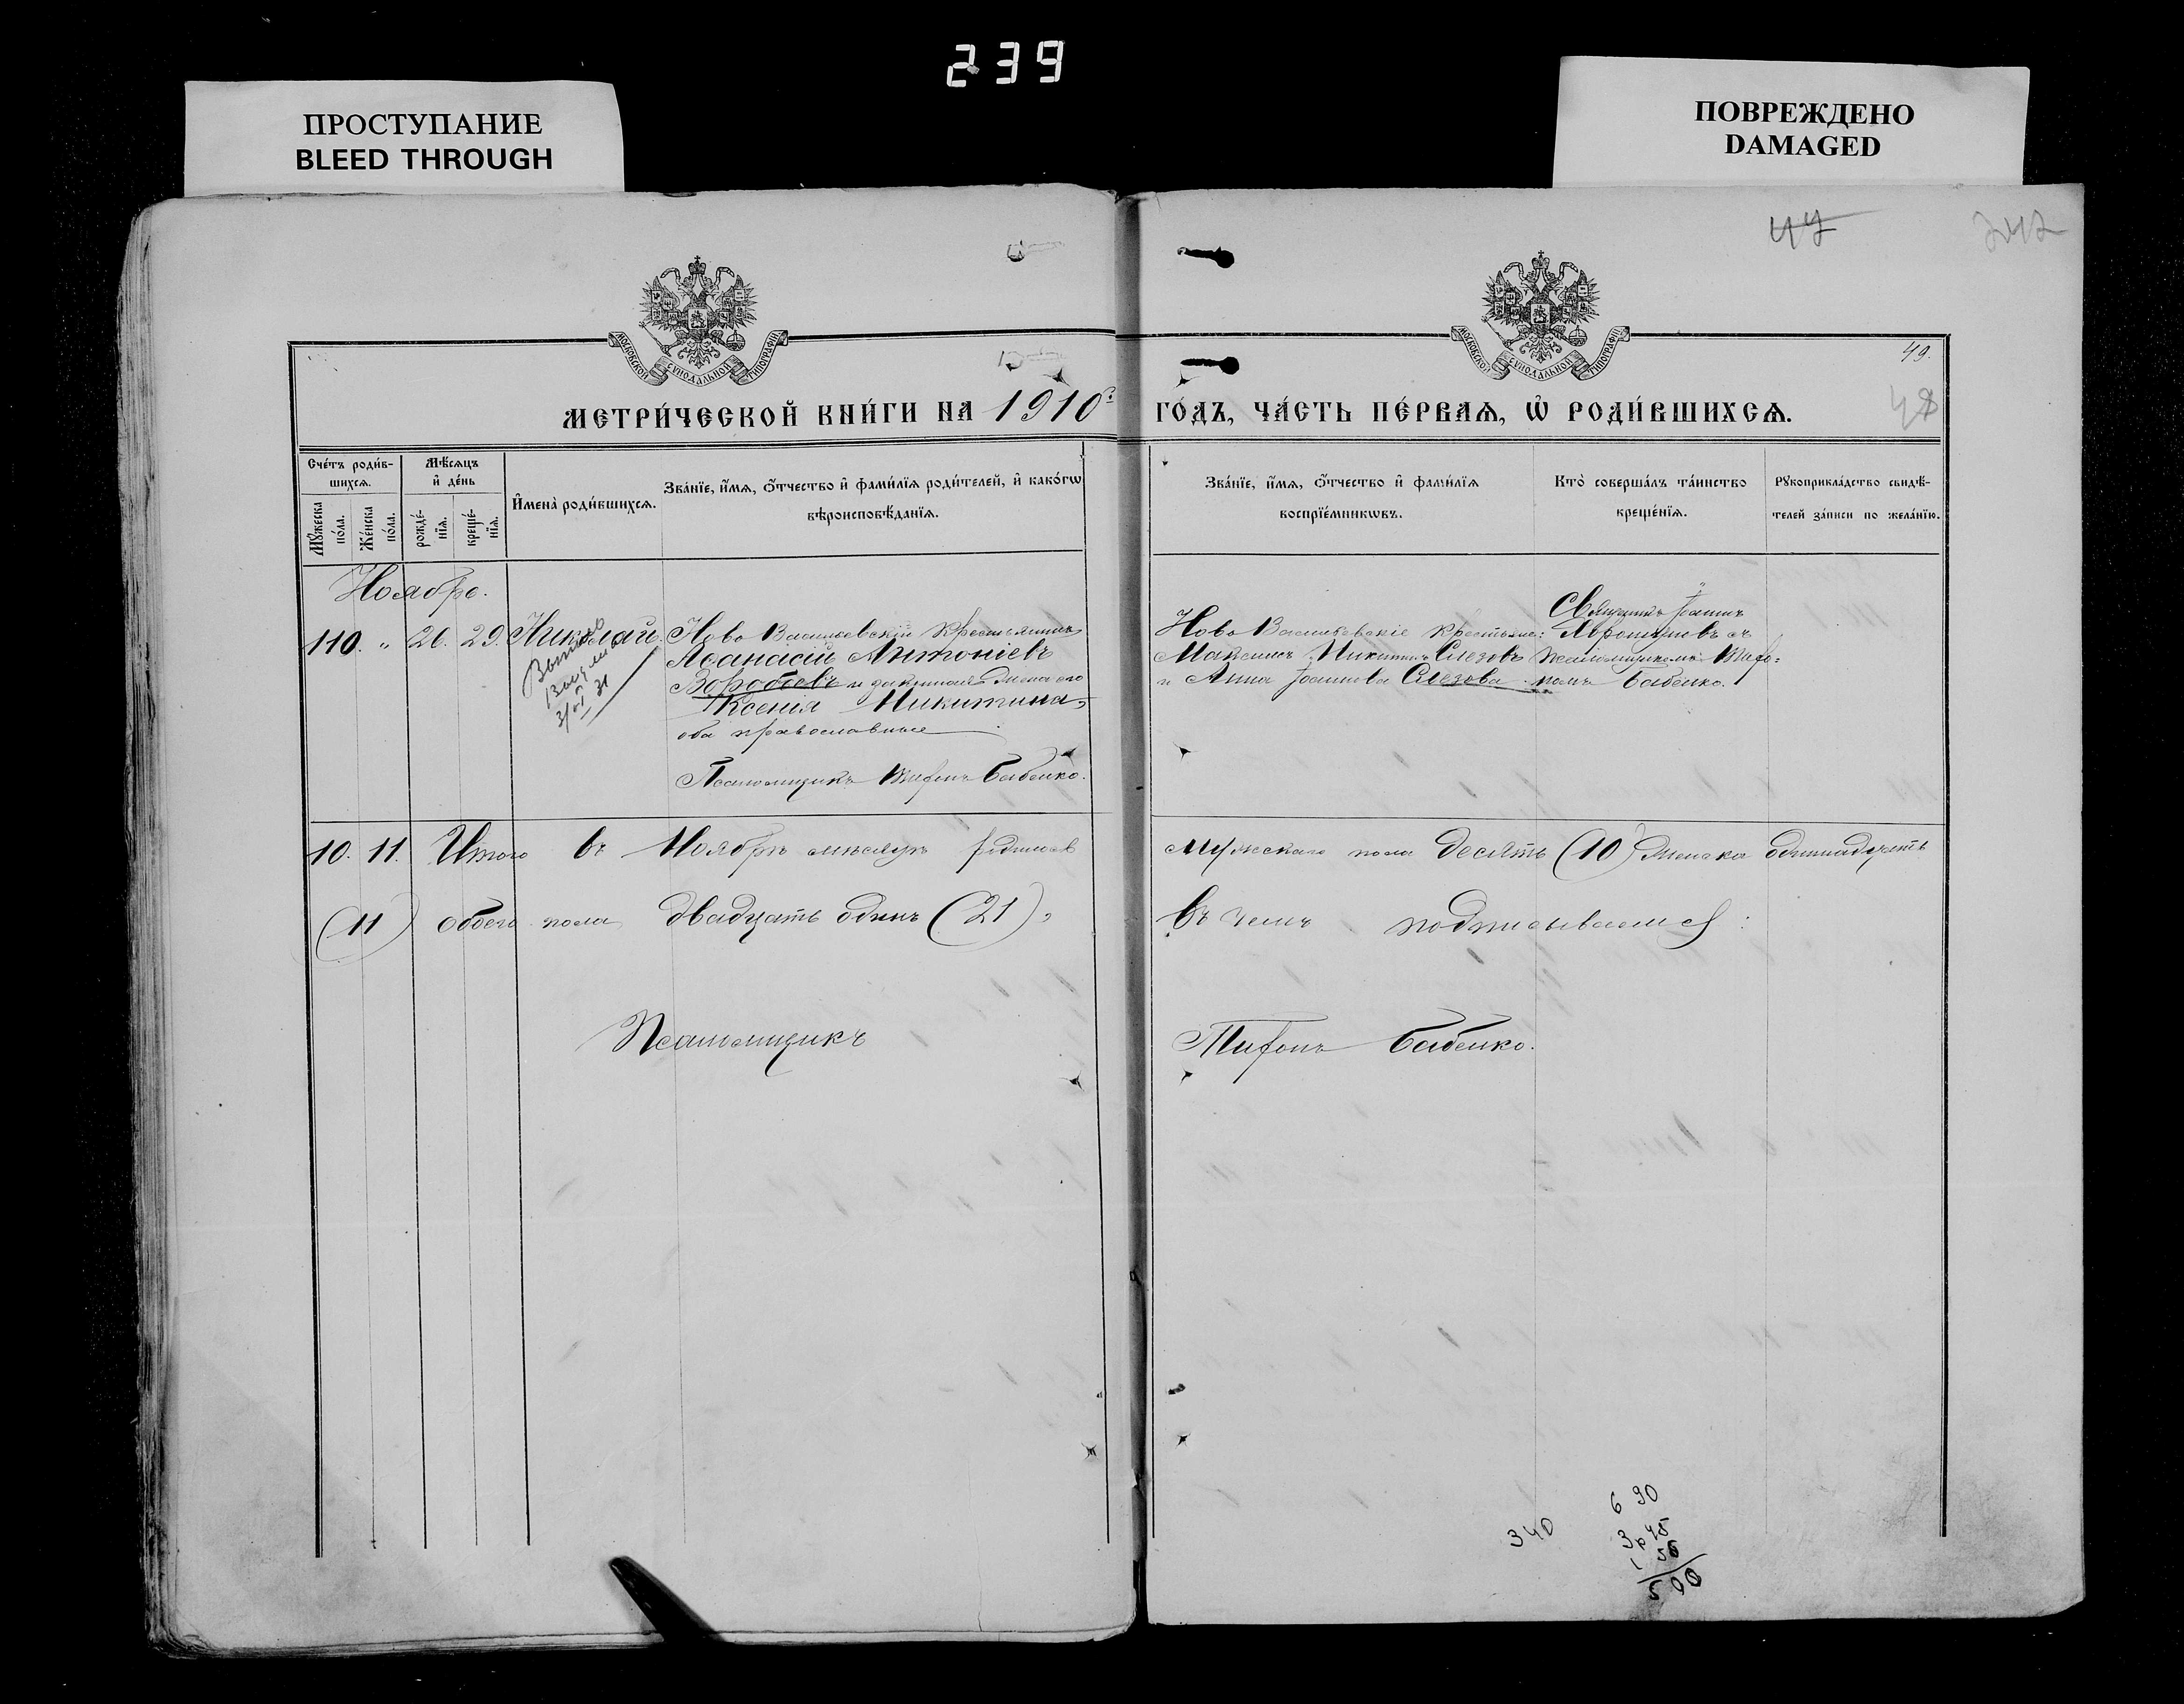 239
ПРОСТУПАНИЕ
BLEED THROUGH
ПОВРЕЖДЕНО
DAMAGED
47
242
МОСКОВСКОЙ СѴНОДАЛЬНОЙ ТИПОГРАФІИ
МОСКОВСКОЙ СѴНОДАЛЬНОЙ ТИПОГРАФІИ
49.
48
МЕТРИ́ЧЕСКОЙ КНИ́ГИ НА 1910 ГО́ДЪ, ЧА́СТЬ ПЕ́РВАѦ, Ѡ҆ РОДИ́ВШИХСѦ.
Сче́тъ роди́в-
шихсѧ.
Мѣ́сѧцъ
и҆ де́нь
Мꙋ́жеска
по́ла.
Же́нска
по́ла.
рожде́-
нїѧ.
креще́-
нїѧ.
И҆мена̀ роди́вшихсѧ.
Зва́нїе, и҆́мѧ, ѻ҆́тчество и҆ фами́лїѧ роди́телей, и҆ како́гѡ
вѣроисповѣ́данїѧ.
Зва́нїе, и҆́мѧ, ѻ҆́тчество и҆ фами́лїѧ
воспрїе́мникѡвъ.
Кто̀ соверша́лъ та́инство
креще́нїѧ.
Рꙋкоприкла́дство свидѣ́-
телей за́писи по жела́нїю.
Ноябрь.
110. " 26. 29. Николай.
Ново Васильевскій крестьянинъ
Аѳанасій Антоніевъ
Воробьевъ и законная жена его
Ксенія Никитина,
оба православные
Псаломщикъ Тифонъ Бабенко.
Ново Васильевскіе крестьяне:
Максимъ Никитинъ Слезовъ
и Анна Іоаннова Слезова
Священникъ Іоаннъ
съ
псаломщикомъ Тифо=
номъ Бабенко.
10. 11. Итого въ Ноябрѣ мѣсяцѣ родилось мужескаго пола десять (10) женска одиннадцать
(11) обоего пола двадцать одинъ (21), въ чемъ подписываемся:
Псаломщикъ Тифонъ Бабенко.
340
6 90
500